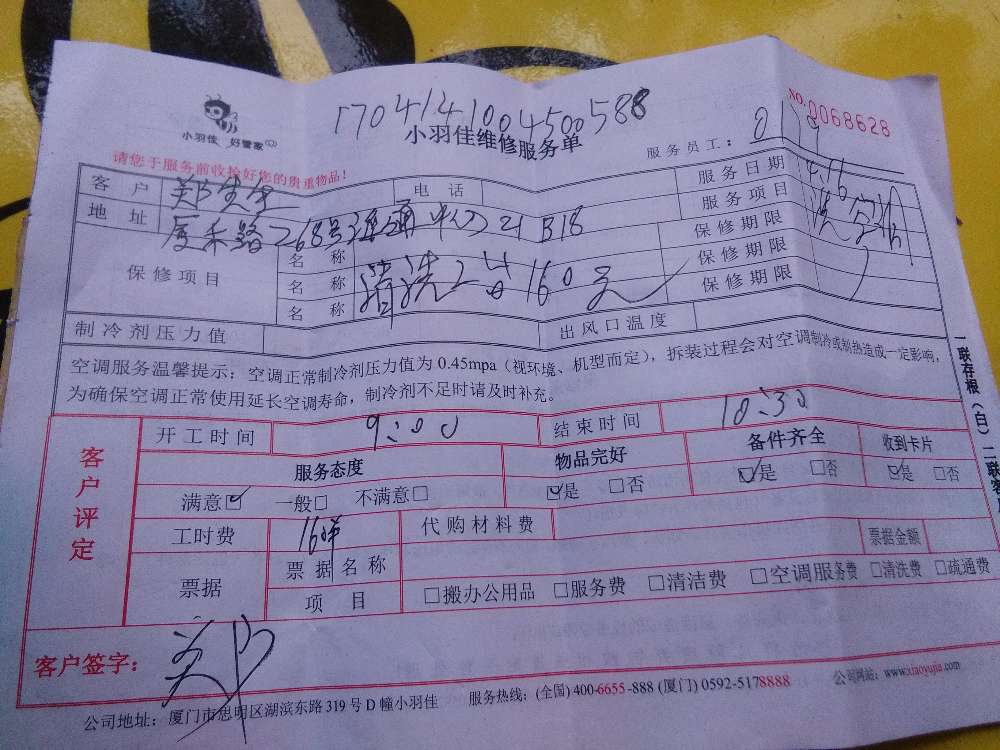 1704141004500588
小羽佳 好管家
小羽佳维修服务单
NO.0068628
服务员工:
请您于服务前收拾好您的贵重物品!
客户 郑先生 电话 服务日期 4.16
地址 厦禾路268号 21B18 服务项目 洗空调
保修项目 名称 保修期限
名称 清洗2台160元 保修期限
名称 保修期限
制冷剂压力值 出风口温度
空调服务温馨提示:空调正常制冷剂压力值为0.45mpa(视环境、机型而定),拆装过程会对空调制冷或制热造成一定影响,
为确保空调正常使用延长空调寿命,制冷剂不足时请及时补充。
客户评定
开工时间 9:00 结束时间 10:30
服务态度 物品完好 备件齐全 收到卡片
满意☑ 一般□ 不满意□ ☑是 □否 ☑是 □否 ☑是 □否
工时费 160 代购材料费
票据 票据名称 票据金额
项目 □搬办公用品 □服务费 □清洁费 □空调服务费 □清洗费 □疏通费
客户签字: 郑
公司地址:厦门市思明区湖滨东路319号D幢小羽佳 服务热线:(全国)400-6655-888 (厦门)0592-5178888 公司网站:www.xiaoyujia.com
一联存根(白)二联客